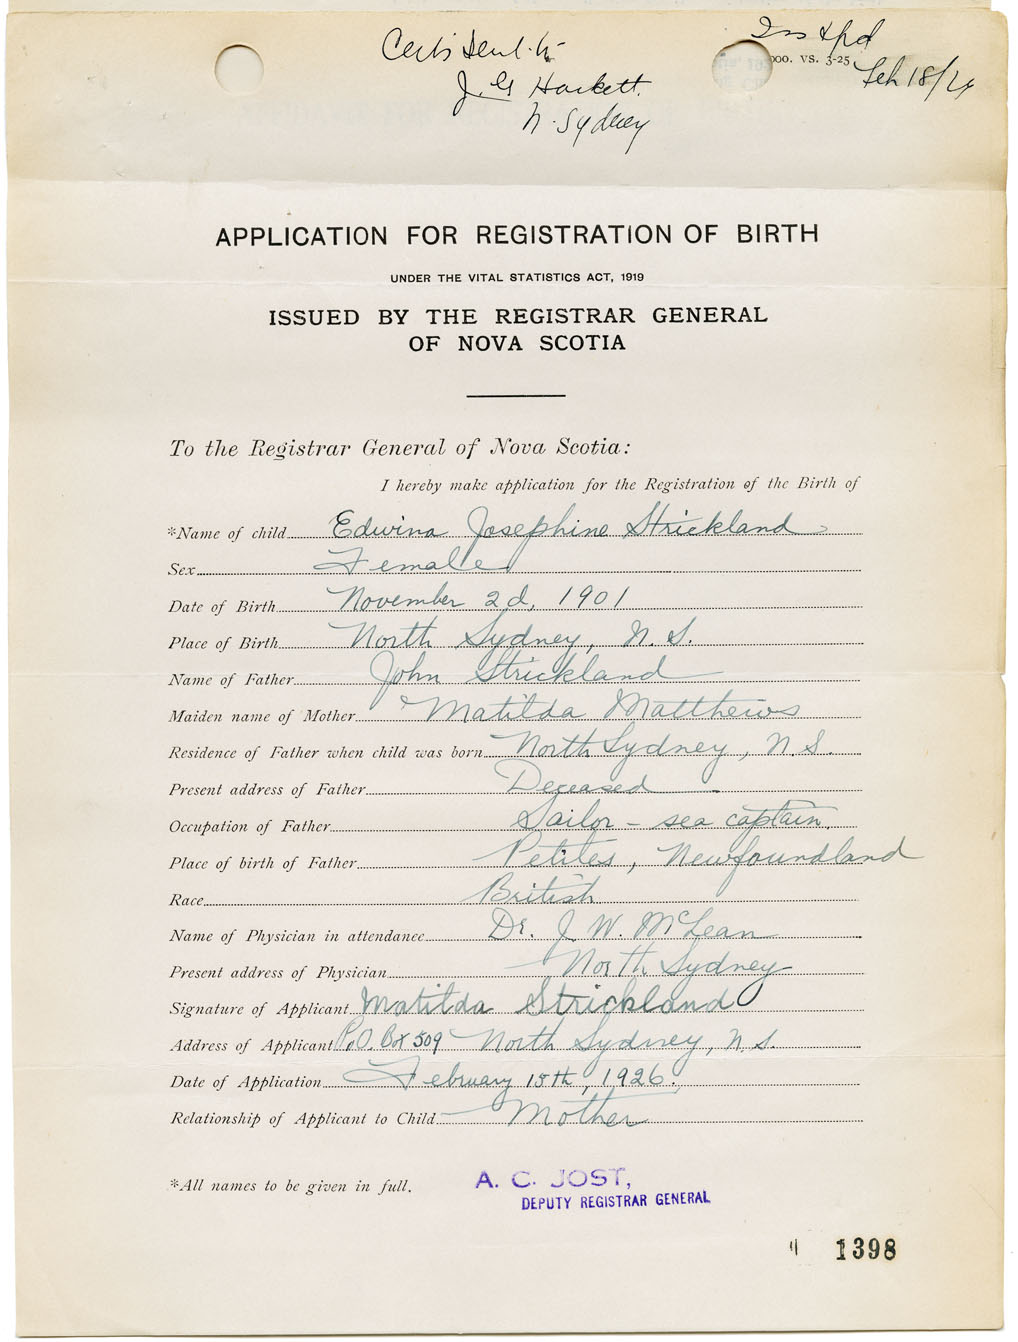 Certs sent to
J. G Hackett.
N. Sydney
Ins & pd
000. VS. 3-25
Feb 18/26
APPLICATION FOR REGISTRATION OF BIRTH
UNDER THE VITAL STATISTICS ACT, 1919
ISSUED BY THE REGISTRAR GENERAL
OF NOVA SCOTIA
To the Registrar General of Nova Scotia:
I hereby make application for the Registration of the Birth of
*Name of child Edwina Josephine Strickland
Sex Female
Date of Birth November 2d, 1901
Place of Birth North Sydney, N. S.
Name of Father John Strickland
Maiden name of Mother Matilda Matthews
Residence of Father when child was born North Sydney, N. S.
Present address of Father Deceased
Occupation of Father Sailor - sea captain.
Place of birth of Father Petites, Newfoundland
Race British
Name of Physician in attendance Dr. J. W. McLean
Present address of Physician North Sydney
Signature of Applicant Matilda Strickland
Address of Applicant P.O. Box 509 North Sydney, N. S.
Date of Application February 15th, 1926.
Relationship of Applicant to Child Mother
*All names to be given in full.
A. C. JOST,
DEPUTY REGISTRAR GENERAL
1398